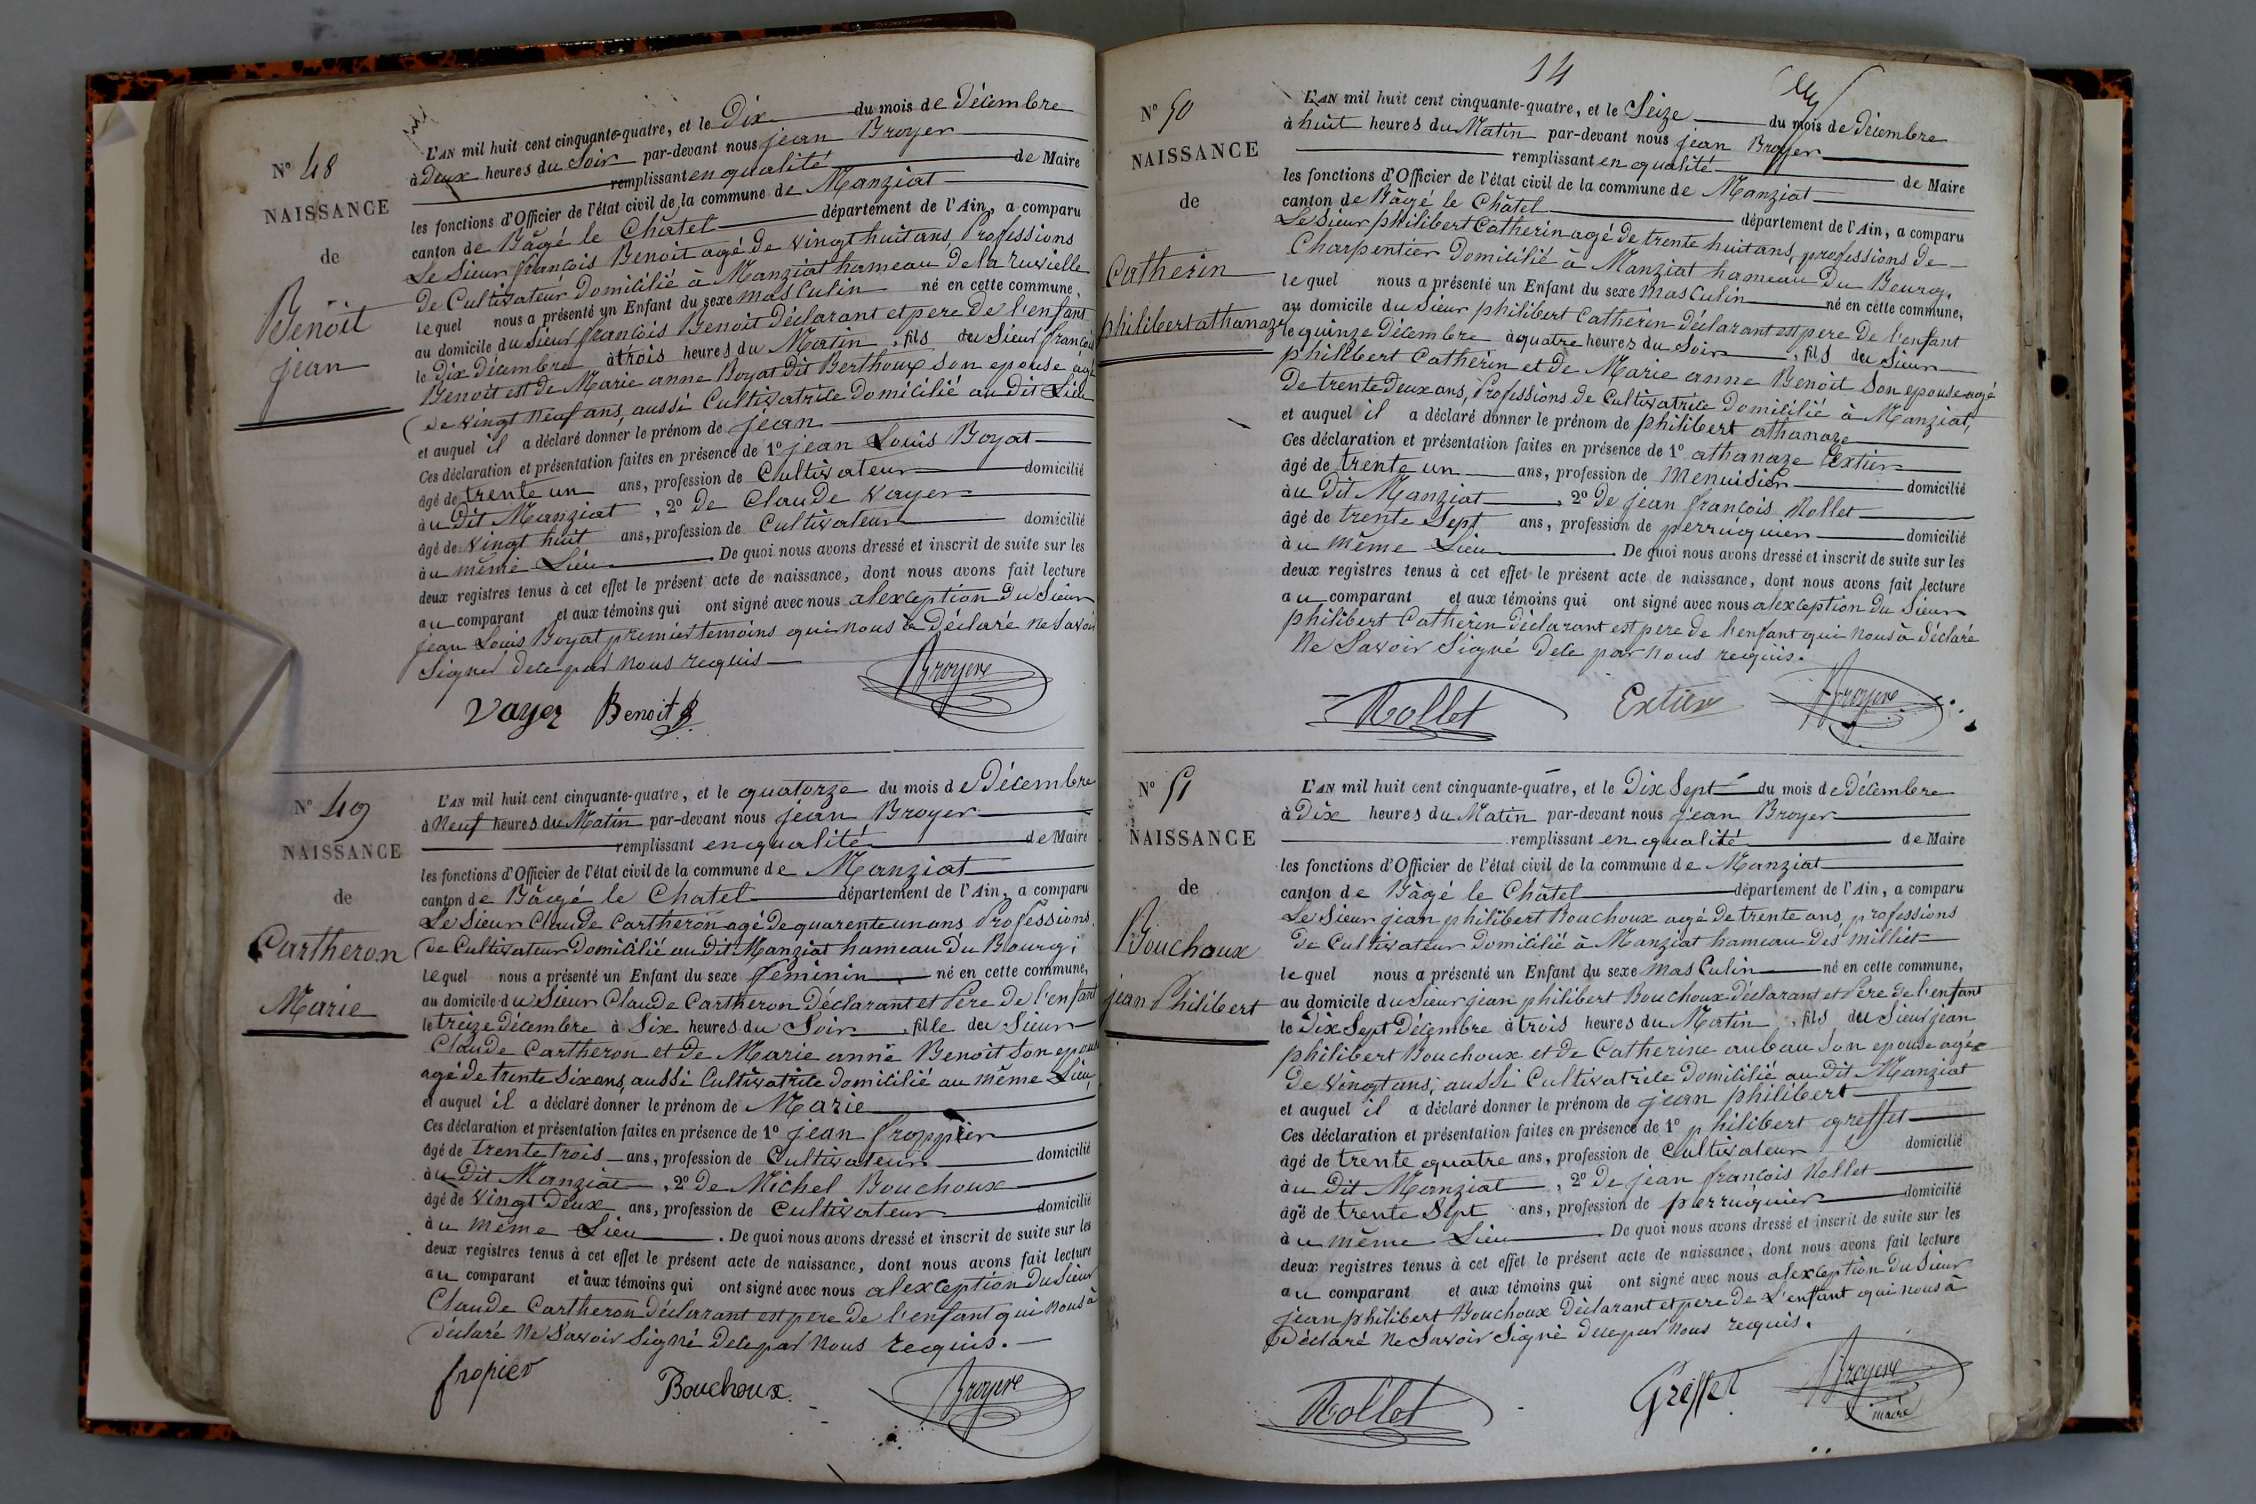 N° 48
NAISSANCE
de
Benoit
jean
L'AN mil huit cent cinquante-quatre, et le Dix du mois de Décembre
à Deux heures du Soir par-devant nous jean Broyer
remplissant en qualité de Maire
les fonctions d'Officier de l'état civil de la commune de Manziat
canton de Bâgé le Châtel département de l'Ain, a comparu
Le Sieur françois Benoit agé de vingt huit ans, Professions
De Cultivateur Domicilié à Manziat hameau De la
le quel nous a présenté un Enfant du sexe masculin né en cette commune,
au domicile du Sieur françois Benoit Déclarant et pere De l'enfant
le Dix Décembre à trois heures du Matin, fils du Sieur françois
Benoit est de Marie anne Boyat Dit Berthoux Son epouse agé
De vingt neuf ans, aussi Cultivatrice Domicilié au Dit Lieu
et auquel il a déclaré donner le prénom de jean
Ces déclaration et présentation faites en présence de 1° jean Louis Boyat
âgé de trente un ans, profession de Cultivateur domicilié
àu Dit Manziat, 2° De Claude Vayer
âgé de vingt huit ans, profession de Cultivateur domicilié
àu même Lieu. De quoi nous avons dressé et inscrit de suite sur les
deux registres tenus à cet effet le présent acte de naissance, dont nous avons fait lecture
au comparant et aux témoins qui ont signé avec nous alexception Du Sieur
jean Louis Boyat premier temoins qui nous à Déclaré ne Savoir
Signé dece par nous requis
Vayer Benoit Broyer
N° 49
NAISSANCE
de
Cartheron
Marie
L'AN mil huit cent cinquante-quatre, et le quatorze du mois de Décembre
à Neuf heures du Matin par-devant nous jean Broyer
remplissant en qualité de Maire
les fonctions d'Officier de l'état civil de la commune de Manziat
canton de Bâgé le Chatel département de l'Ain, a comparu
Le Sieur Claude Cartheron agé De quarente un ans Professions
De Cultivateur Domicilié au Dit Manziat hameau Du Bourg,
le quel nous a présenté un Enfant du sexe feminin né en cette commune,
au domicile du Sieur Claude Cartheron Déclarant et Père De l'enfant
le treize Décembre à Six heures du Soir, fille du Sieur
Claude Cartheron et de Marie anne Benoit Son epouse
agé de trente Six ans, aussi Cultivatrice Domicilié au même Lieu,
et auquel il a déclaré donner le prénom de Marie
Ces déclaration et présentation faites en présence de 1° jean froppier
âgé de trente trois ans, profession de Cultivateur domicilié
àu Dit Manziat, 2° De Michel Bouchoux
âgé de Vingt Deux ans, profession de Cultivateur domicilié
àu même Lieu. De quoi nous avons dressé et inscrit de suite sur les
deux registres tenus à cet effet le présent acte de naissance, dont nous avons fait lecture
au comparant et aux témoins qui ont signé avec nous alexception Du Sieur
Claude Cartheron Déclarant est pere De l'enfant qui nous à
déclaré Ne Savoir Signé Dece par nous requis.
fropier Bouchoux Broyer
14
N° 50
NAISSANCE
de
Catherin
philibert athanaze
L'AN mil huit cent cinquante-quatre, et le Seize du mois de Décembre
à huit heures du Matin par-devant nous jean Broyer
remplissant en qualité de Maire
les fonctions d'Officier de l'état civil de la commune de Manziat
canton de Bâgé le Châtel département de l'Ain, a comparu
Le Sieur philibert Catherin agé De trente huit ans, professions De
Charpentier Domicilié à Manziat hameau Du Bourg,
le quel nous a présenté un Enfant du sexe masculin né en cette commune,
au domicile du Sieur philibert Catherin Déclarant est pere De l'enfant
le quinze Décembre à quatre heures du Soir, fils du Sieur
philibert Catherin et de Marie anne Benoit Son epouse agé
De trente Deux ans, Professions de Cultivatrice Domicilié à Manziat,
et auquel il a déclaré donner le prénom de philibert athanaze
Ces déclaration et présentation faites en présence de 1° athanaze Extier
âgé de trente un ans, profession de Menuisier domicilié
àu Dit Manziat, 2° De jean françois Rollet
âgé de trente Sept ans, profession de perruquier domicilié
àu même Lieu. De quoi nous avons dressé et inscrit de suite sur les
deux registres tenus à cet effet le présent acte de naissance, dont nous avons fait lecture
au comparant et aux témoins qui ont signé avec nous alexception Du Sieur
philibert Catherin Déclarant est pere De l'enfant qui nous à déclaré
Ne Savoir Signé Dece par nous requis.
Rollet Extier Broyer
N° 51
NAISSANCE
de
Bouchoux
jean Philibert
L'AN mil huit cent cinquante-quatre, et le Dix Sept du mois de Décembre
à Dix heures du Matin par-devant nous jean Broyer
remplissant en qualité de Maire
les fonctions d'Officier de l'état civil de la commune de Manziat
canton de Bâgé le Châtel département de l'Ain, a comparu
Le Sieur jean philibert Bouchoux agé De trente ans, professions
De Cultivateur Domicilié à Manziat hameau Des Milliet
le quel nous a présenté un Enfant du sexe Masculin né en cette commune,
au domicile du Sieur jean philibert Bouchoux Déclarant et Pere De l'enfant
le Dix Sept Décembre à trois heures du Matin, fils du Sieur jean
philibert Bouchoux et de Catherine aubeau Son epouse agée
De vingt ans, aussi Cultivatrice Domicilié au Dit Manziat
et auquel il a déclaré donner le prénom de jean philibert
Ces déclaration et présentation faites en présence de 1° philibert greffet
âgé de trente quatre ans, profession de Cultivateur domicilié
àu Dit Manziat, 2° De jean françois Rollet
âgé de trente Sept ans, profession de perruquier domicilié
àu même Lieu. De quoi nous avons dressé et inscrit de suite sur les
deux registres tenus à cet effet le présent acte de naissance, dont nous avons fait lecture
au comparant et aux témoins qui ont signé avec nous alexception Du Sieur
jean philibert Bouchoux Déclarant et pere De L'enfant qui nous à
Déclaré Ne Savoir Signé Dece par nous requis.
Rollet Greffet Broyer
maire